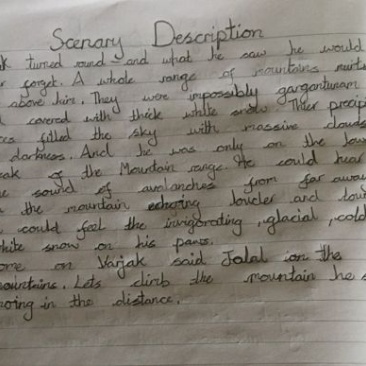 Scenary Description
turned round and what he saw he would
forget. A whole range of mountains
above him. They were impossibly gargantuan
covered with thick white snow Their
filled the sky with massive clouds
darkness. And he was only on the
of the Mountain range. He could hear
sound of avalanches from far away
the mountain echoing louder and
could feel the invigorating, glacial, cold
snow on his paws.
on Varjak said Jalal on the
mountains. Lets climb the mountain he
in the distance.